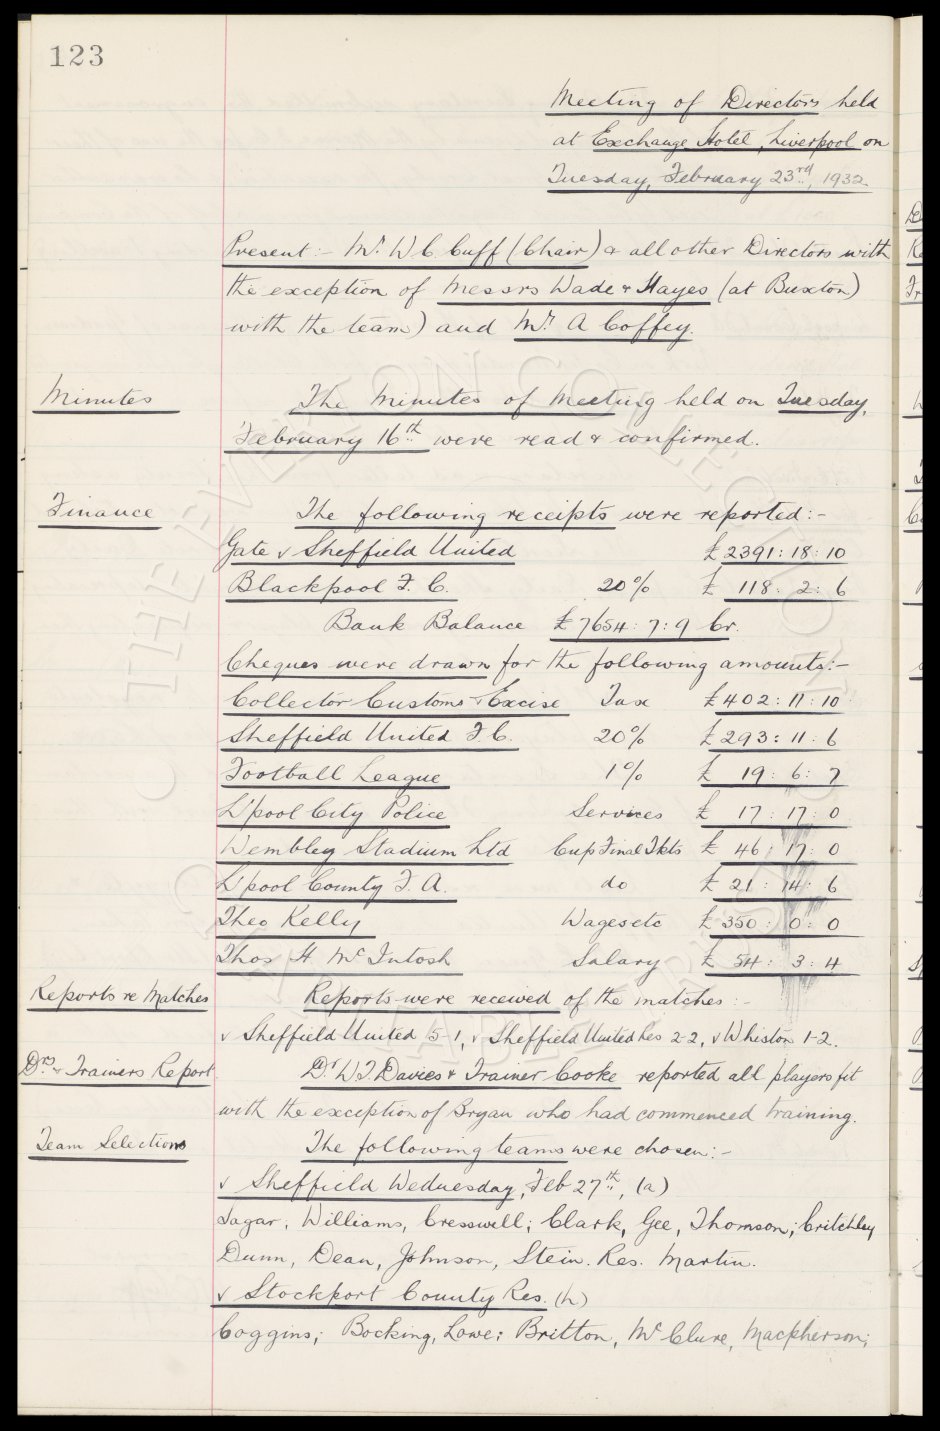 123
Meeting of Directors held
at Exchange Hotel, Liverpool on
Tuesday, February 23rd, 1932.
Present :- Mr W C Cuff (Chair) & all other Directors with
the exception of Messrs Wade & Hayes (at Buxton)
with the team) and Mr A Coffey.
Minutes The Minutes of Meeting held on Tuesday,
February 16th were read & confirmed.
Finance The following receipts were reported:-
Gate v Sheffield United £2391:18:10
Blackpool F. C. 20% £ 118: 2: 6
Bank Balance £7654:7:9 Cr.
Cheques were drawn for the following amounts:-
Collector Customs & Excise Tax £402:11:10
Sheffield United F.C. 20% £293:11:6
Football League 1% £ 19:6:7
L'pool City Police Services £ 17:17:0
Wembley Stadium Ltd Cup Final Tkts £ 46:17:0
L'pool County F.A. do £ 21:14:6
Theo Kelly Wages etc £350:0:0
Thos H McIntosh Salary £ 54:3:4
Reports re Matches Reports were received of the matches :-
v Sheffield United 5-1, v Sheffield United Res 2-2, v Whiston 1-2.
Drs & Trainers Report Dr W J Davies & Trainer Cooke reported all players fit
with the exception of Bryan who had commenced training.
Team Selections The following teams were chosen:-
v Sheffield Wednesday, Feb 27th, (a)
Sagar, Williams, Cresswell; Clark, Gee, Thomson; Critchley
Dunn, Dean, Johnson, Stein. Res. Martin.
v Stockport County Res. (h)
Coggins; Bocking, Lowe; Britton, McClure, Macpherson;
THE EVERTON COLLECTION